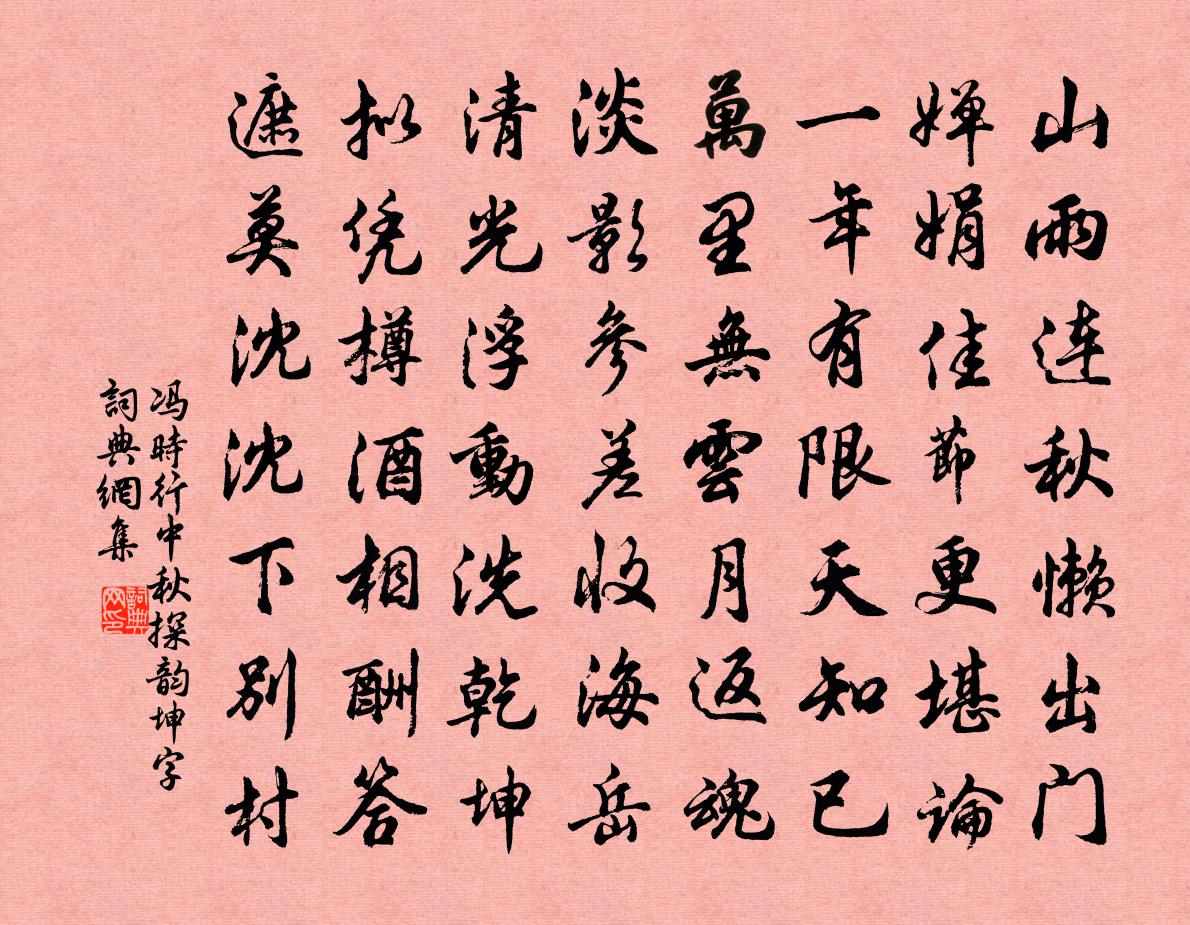 山雨连秋懒出门
婵娟佳節更堪論
一年有限天知已
萬里無雲月返魂
淡影参差收海岳
清光浮動洗乾坤
拟凭樽酒相酬答
遮莫沈沈下别村
冯時行中秋探韵坤字
詞典網集
詞典网印